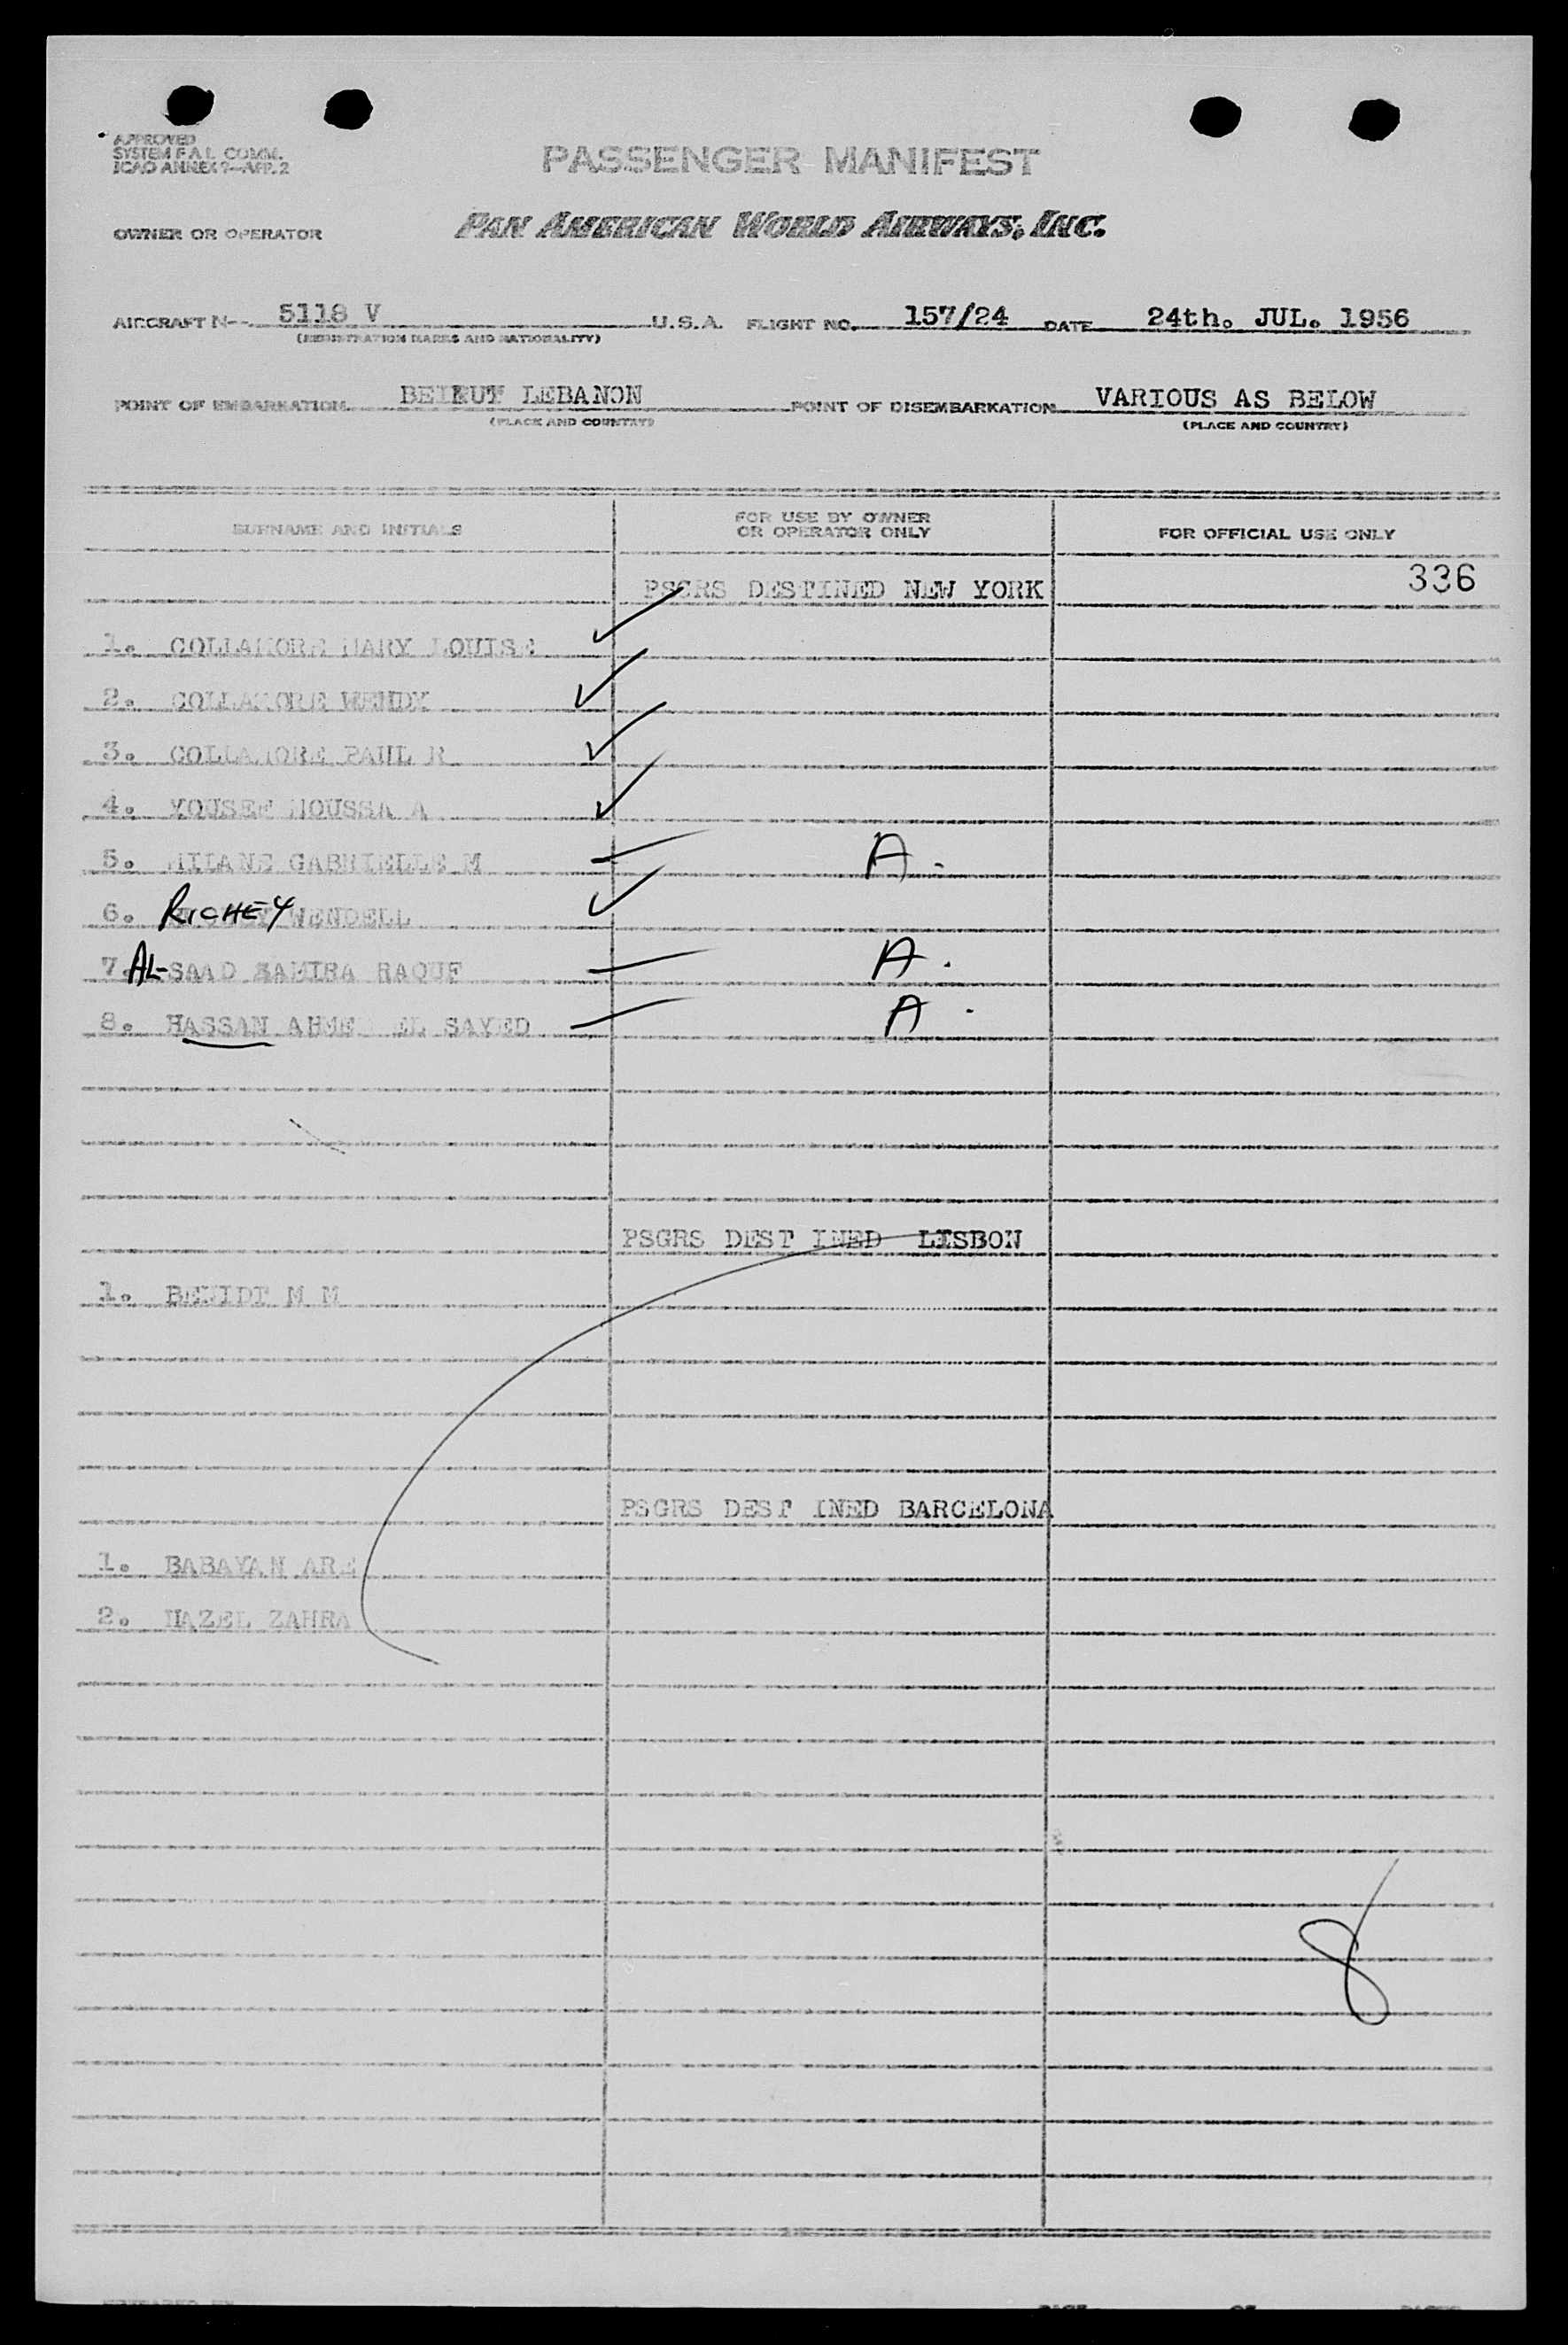 APPROVED
SYSTEM F.A.L. COMM.
ICAO ANNEX 9—APP. 2
PASSENGER MANIFEST
OWNER OR OPERATOR PAN AMERICAN WORLD AIRWAYS, INC.
AIRCRAFT N-- 5118 V U.S.A. FLIGHT NO. 157/24 DATE 24th. JUL. 1956
(REGISTRATION MARKS AND NATIONALITY)
POINT OF EMBARKATION BEIRUT LEBANON POINT OF DISEMBARKATION VARIOUS AS BELOW
(PLACE AND COUNTRY) (PLACE AND COUNTRY)
SURNAME AND INITIALS FOR USE BY OWNER OR OPERATOR ONLY FOR OFFICIAL USE ONLY
PSGRS DESTINED NEW YORK 336
1. COLLAMORE MARY LOUISE
2. COLLAMORE WENDY
3. COLLAMORE PAUL R
4. YOUSEF MOUSSA A
5. GABRIELLE M A.
6. RICHEY WENDELL
7. AL-SAAD SAMIRA RAOUF A.
8. HASSAN AHMED EL SAYED A.
PSGRS DEST INED LISBON
1. M M
PSGRS DEST INED BARCELONA
1. BABAYAN ARE
2. ZAHRA
8